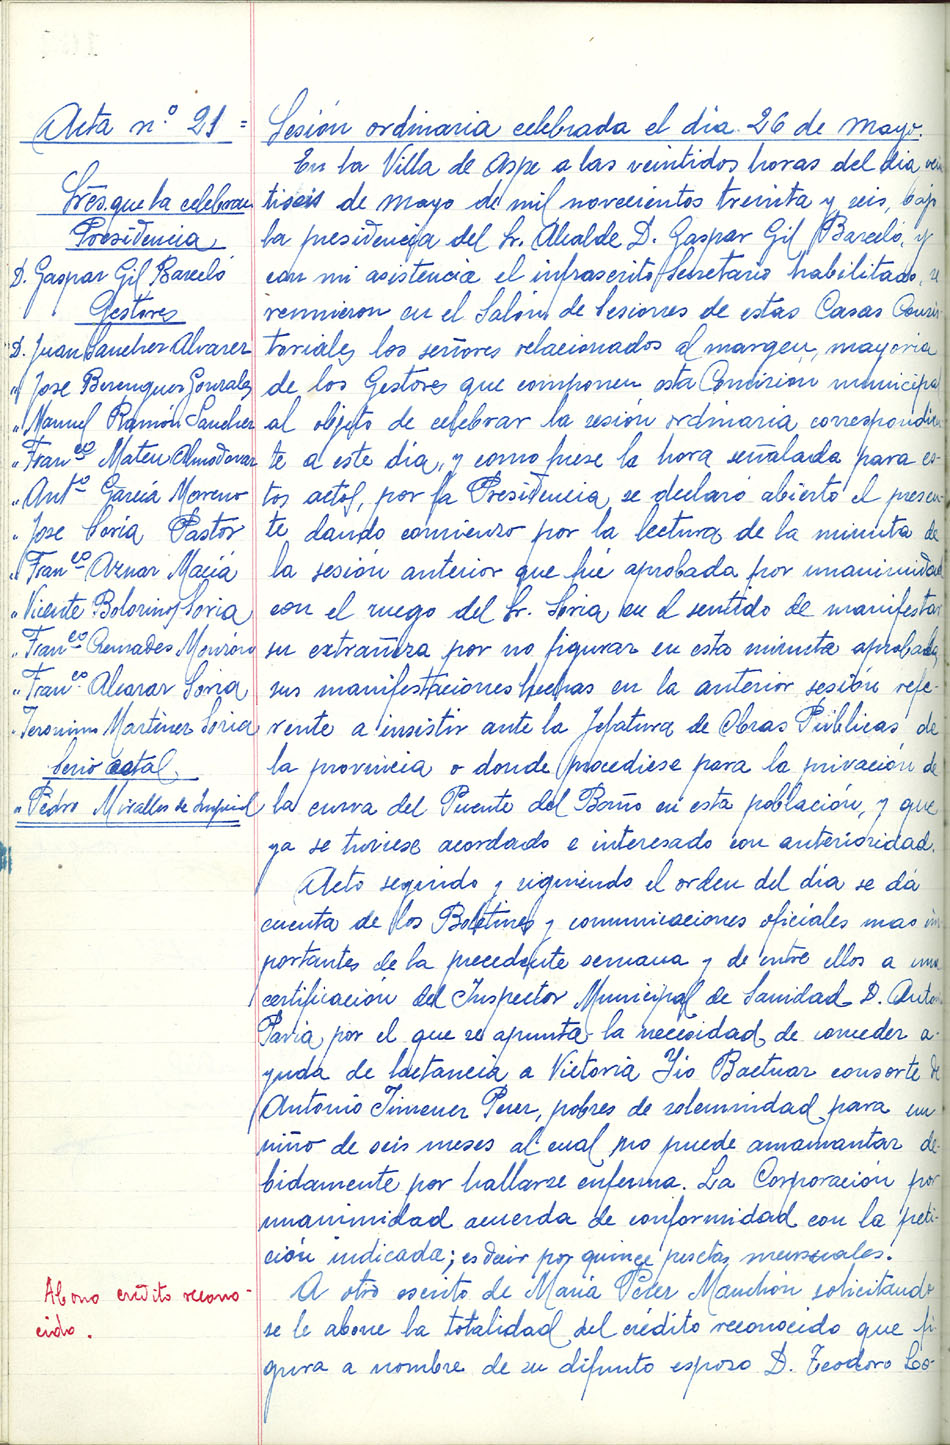 Acta n.º 21 =
Sres. que la celebran
Presidencia
D. Gaspar Gil Barceló
Gestores
D. Juan Sanchez Alvarez
" Jose Berenguer Gonzalez
" Manuel Ramón Sanchez
" Fran.co Mateu Almodovar
" Ant.º García Moreno
" Jose Soria Pastor
" Fran.co Aznar Maciá
" Vicente Bolorinos Soria
" Fran.co Cremades Monzón
" Fran.co Alcaraz Soria
" Jeronimo Martinez Soria
Secrio actal
" Pedro Miralles de Imperial
Abono crédito recono-
cido.
Sesión ordinaria celebrada el dia 26 de Mayo.
En la Villa de Aspe a las veintidos horas del dia vein
tiseis de Mayo de mil novecientos treinta y seis, bajo
la presidencia del Sr. Alcalde D. Gaspar Gil Barceló, y
con mi asistencia el infrascrito Secretario habilitado, se
reunieron en el Salón de Sesiones de estas Casas Consis-
toriales los señores relacionados al margen, mayoria
de los Gestores que componen esta Comisión municipal
al objeto de celebrar la sesión ordinaria correspondien
te a este dia, y como fuese la hora señalada para es-
tos actos, por la Presidencia se declaró abierto el presen-
te dando comienzo por la lectura de la minuta de
la sesión anterior que fué aprobada por unanimidad
con el ruego del Sr. Soria en el sentido de manifestar
su extrañeza por no figurar en esta minuta aprobada,
sus manifestaciones hechas en la anterior sesión refe-
rente a insistir ante la Jefatura de Obras Públicas de
la provincia o donde procediese para la privación de
la curva del Puente del Baño en esta población, y que
ya se tuviese acordado e interesado con anterioridad.
Acto seguido y siguiendo el orden del día se dá
cuenta de los Boletines y comunicaciones oficiales mas im
portantes de la precedente semana y de entre ellos a una
certificación del Inspector Municipal de Sanidad D. Antonio
Pavia por el que se apunta la necesidad de conceder a-
yuda de lactancia a Victoria consorte de
Antonio Jimenez Perez, pobres de solemnidad para un
niño de seis meses al cual no puede amamantar de-
bidamente por hallarse enferma. La Corporación por
unanimidad acuerda de conformidad con la peti-
ción indicada; es decir por quince pesetas mensuales.
A otro escrito de Maria Pérez Manchón solicitando
se le abone la totalidad del crédito reconocido que fi-
gura a nombre de su difunto esposo D. Teodoro Lo-